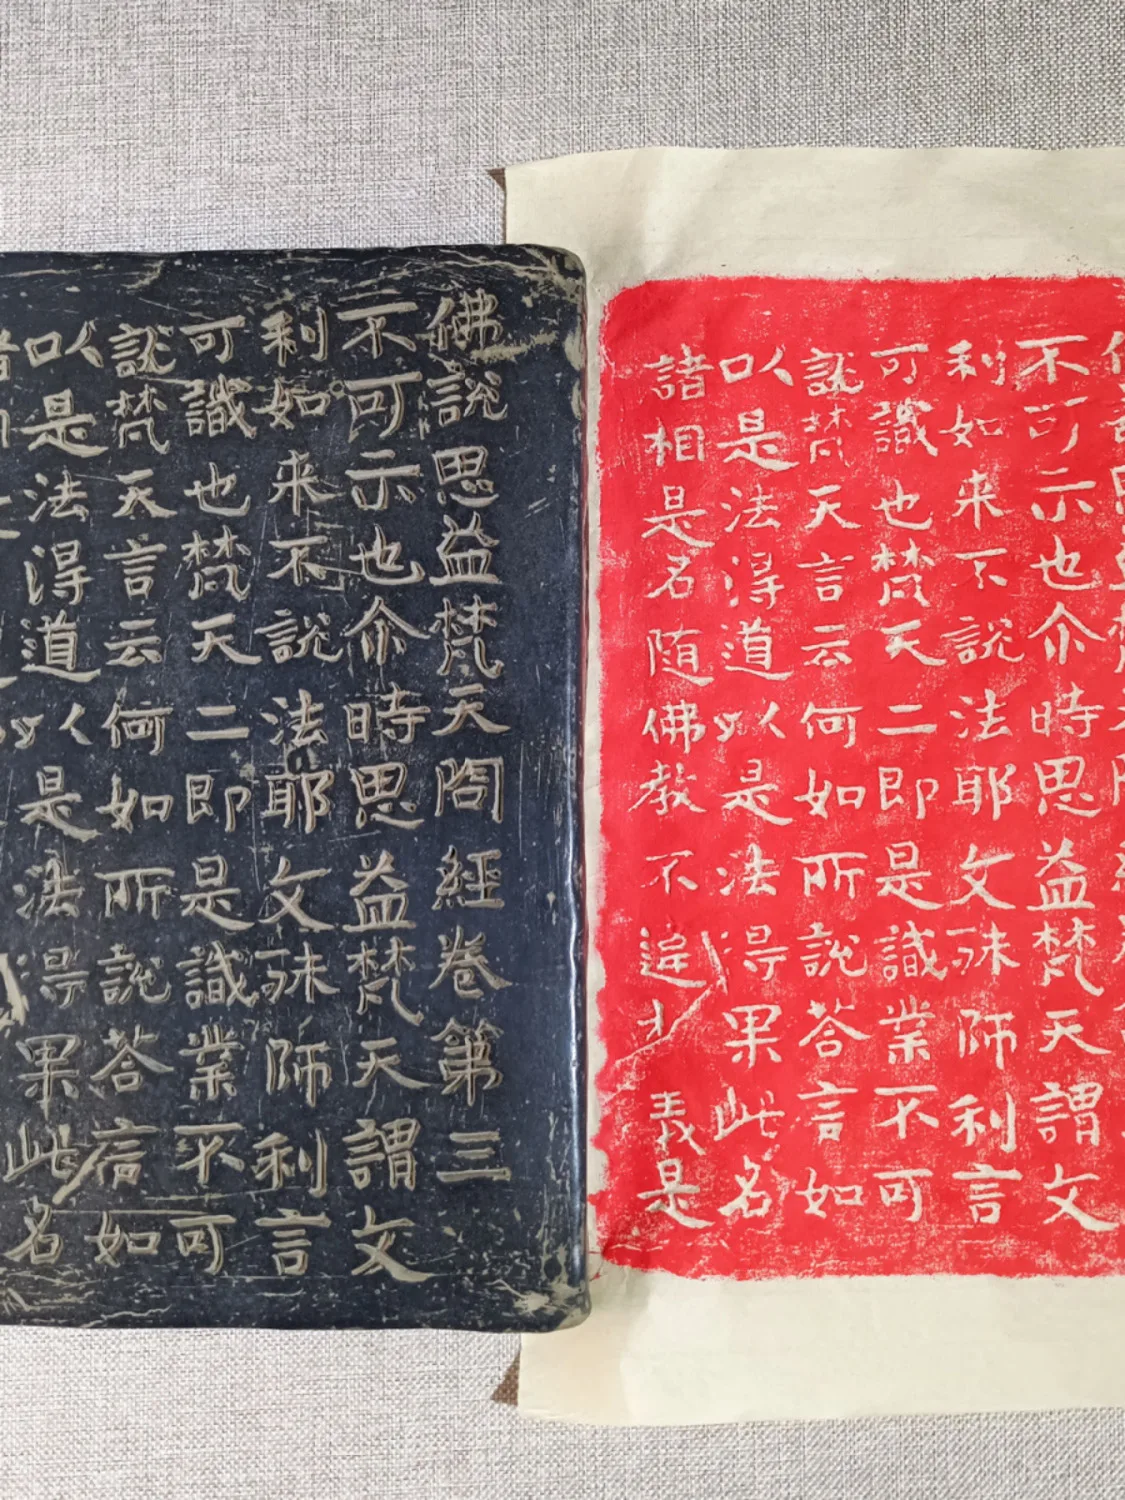 佛說思益梵天問經卷第三
不可示也尒時思益梵天謂文
利如来不說法耶文殊師利言
可識也梵天二即是識業不可
說梵天言云何如所說荅言如
以是法得道以是法得果此名
不可示也尒時思益梵天謂文
利如来不說法耶文殊師利言
可識也梵天二即是識業不可
說梵天言云何如所說荅言如
以是法得道以是法得果此名
諸相是名随佛教不義是